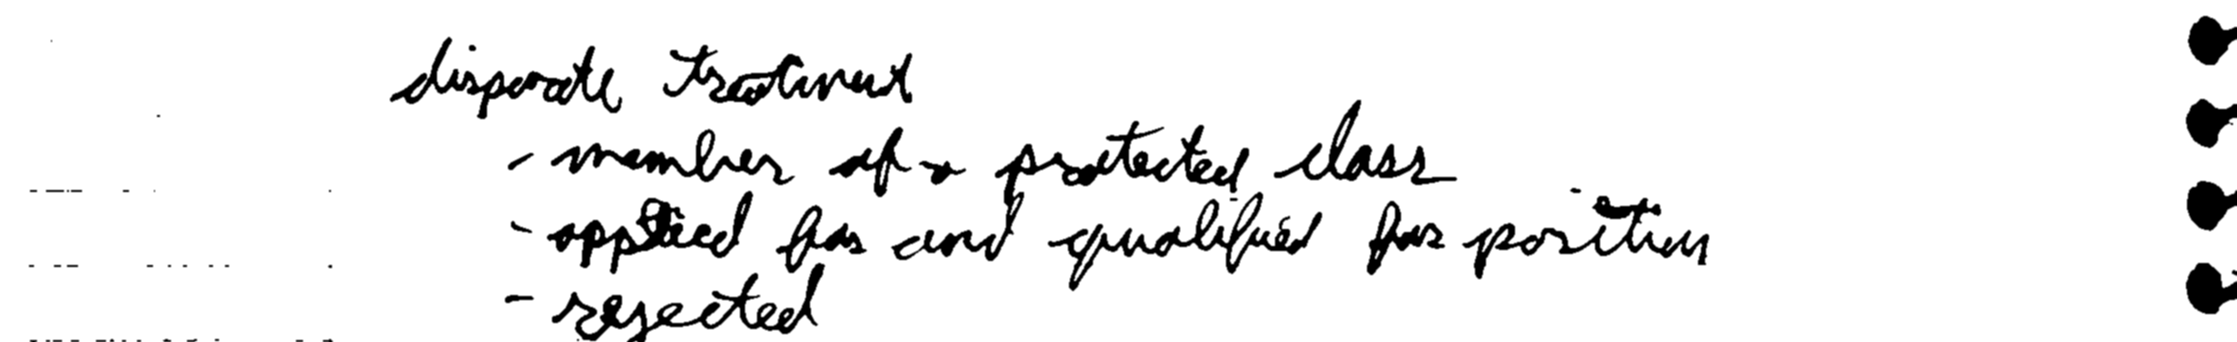 disparate treatment
- member of a protected class
- applied for and qualified for position
- rejected